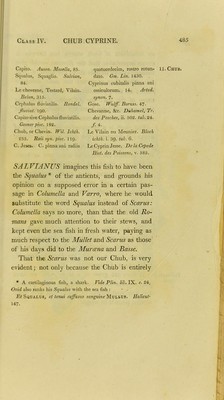 CLASS IV. CHUB CYPRINE. 485
Capito. Auson. Mosella, 85.
Squalus, Squaglio. Salvian,
84.
Le chevesne, Testard, Vilain.
Belon, 315.
Cephalus fluviatilis. Rondel.
fluviat. 190.
Capito sive Cephalus fluviatilis.
Gesner pisc. 182.
Chub, or Chevin. Wil. Icth.
255. Raii syn. pisc. 119.
C. Jeses. C. pinna ani radiis
quatuordecim, rostro rotun-
dato. Gm. Lin. 1430.
Cyprinus cubitalis pinna ani
ossiculorum. 14. Arted.
synon. 7.
Chevanne, &c. Duhamel, Tr.
des Pesches, ii.
Le Vilain ou Meunier. Bloch
ichth. i. 39. tab. 6.
Le Cyprin Jesse. De la Cepede
Hist. des Poissons, v.
11. CHUB.
SALVIANUS imagines this fish to have been
the Squalus * of the antients, and grounds his
opinion on a supposed error in a certain pas-
sage in Columella and Varro, where he would
substitute the word Squalus instead of Scarus:
Columella says no more, than that the old Ro-
mans gave much attention to their stews, and
kept even the sea fish in fresh water, paying as
much respect to the Mullet and Scarus as those
of his days did to the Muræna and Basse.
That the Scarus was not our Chub, is very
evident; not only because the Chub is entirely
* A cartilaginous fish, a shark. Vide Plin. lib. IX. c 24,
Ovid also ranks his Squalus with the sea fish:
Et SQUALUS, et tenui suffusus sanguine MULLUS. Halieut.
147.